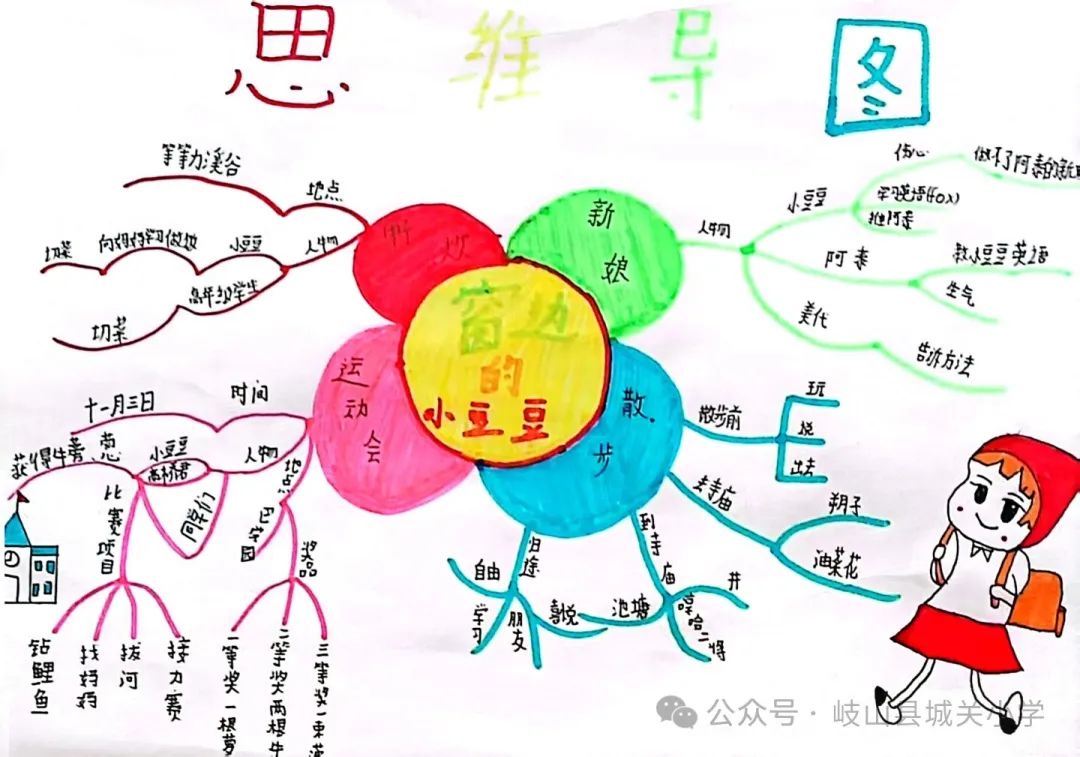 思维导图
窗边
的
小豆豆
野炊
地点
等等力溪谷
人物
小豆豆
向妈妈学做饭
切菜
高年级学生
切菜
新娘
人物
小豆豆
伤心
做不了阿泰的新
学习英语(fox)
阿泰
教小豆豆英语
生气
美代
告诉方法
散步
散步前
玩
说
出去
去寺庙
油菜花
到寺庙
井
池塘
哼哈二将
归途
自由
学习
朋友
喜悦
运动会
时间
十一月三日
人物
小豆豆
高桥君
获得牛蒡、葱
同学们
比赛项目
钻鲤鱼
找妈妈
拔河
接力赛
地点
奖品
一等奖一根萝
二等奖两根牛
三等奖一束菠
公众号·岐山县城关小学